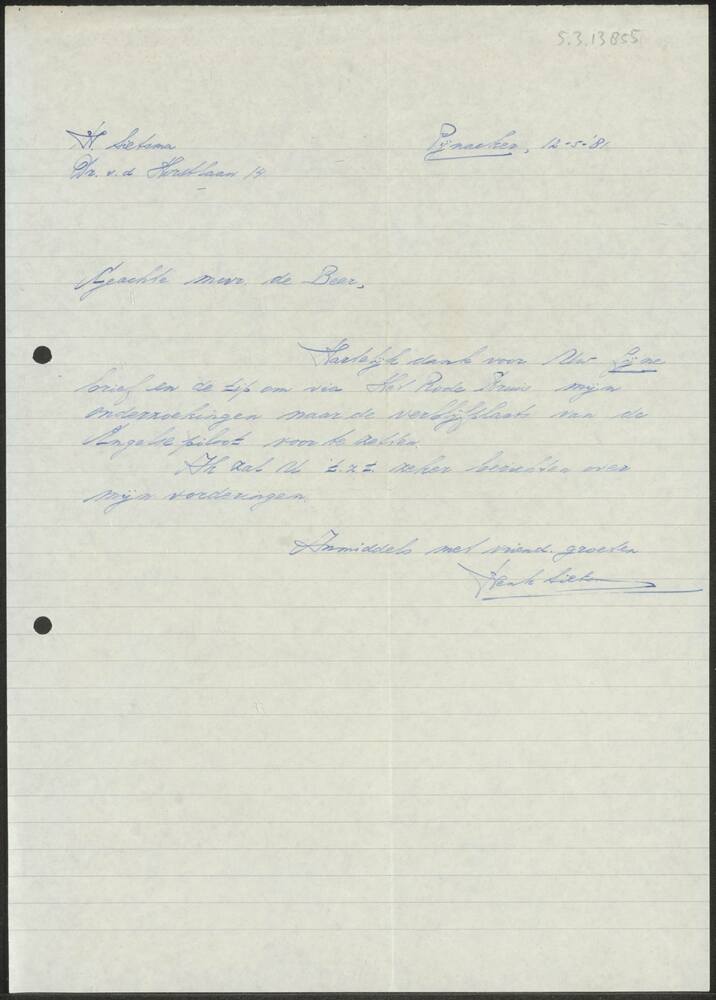 5.3.13855
H. Sietsma
Dr. v.d Horstlaan 14
Pijnacker, 12-5-'81
Geachte mevr. de Beer,
Hartelijk dank voor Uw fijne
brief en de tip om via Het Rode Kruis mijn
onderzoekingen naar de verblijfplaats van de
Engelse piloot voor te zetten.
Ik zal U t.z.t. zeker berichten over
mijn vorderingen.
Inmiddels met vriend. groeten
Henk Sietsma